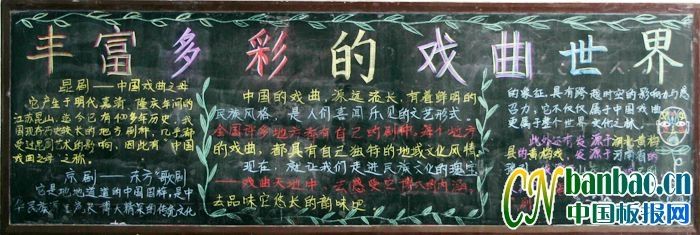 丰富多彩的戏曲世界
昆剧——中国戏曲之母
它产生于明代嘉靖、隆庆年间的
江苏昆山，迄今已有400多年历史，我
国现存历史较长的地方剧种，几乎都
受过昆剧艺术的影响，因此有"中国
戏曲之母"之称。
京剧——东方"歌剧"
它是地地道道的中国国粹，是中
华民族
博大精深的传统文化
中国的戏曲，源远流长，有着鲜明的
民族风格，是人们喜闻乐见的文艺形式。
全国许多地方都有自己的剧种，每个地方
的戏曲，都具有自己独特的地域文化风情。
现在，就让我们走进民族文化的瑰宝
——戏曲天地中，去感受它博大的内涵，
去品味它悠长的韵味吧
的象征，具有跨越时空的影响力与感
召力，它不仅仅属于中国戏曲，
更属于整个世界文化之林。
此外还有发源于湖北黄梅
县的黄梅戏，发源于河南省的
CN banbao.cn
中国板报网